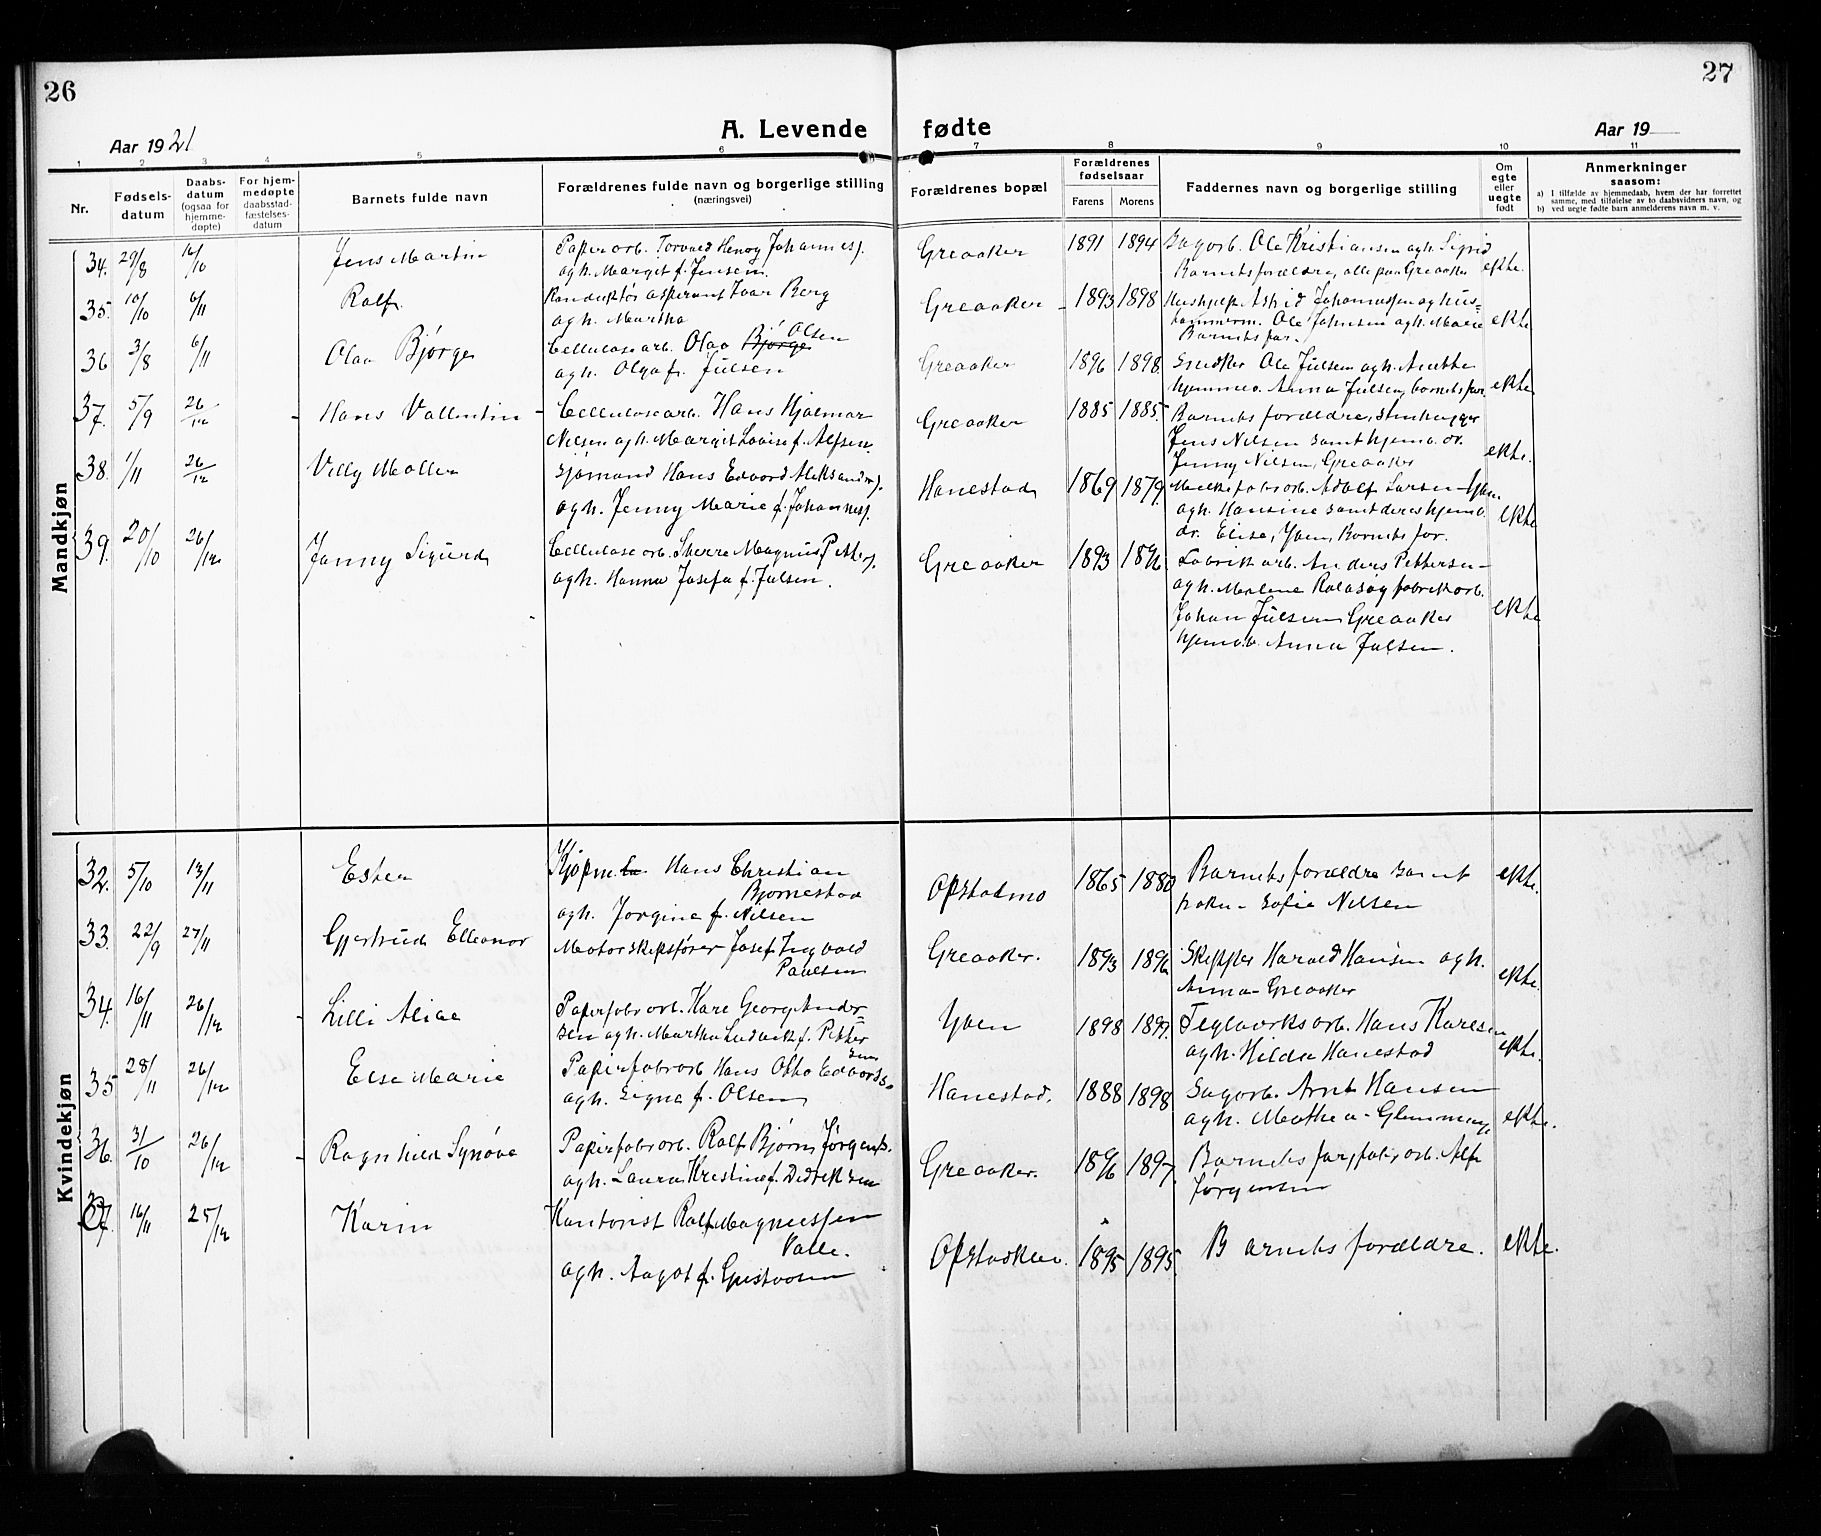 26
27
A. Levende fødte
Aar 1921
Aar 19
1 2 3 4 5 6 7 8 9 10 11
Nr.
Fødsels-
datum
Daabs-
datum
(ogsaa for
hjemme-
døpte)
For hjem-
medøpte
daabsstad-
fæstelses-
datum
Barnets fulde navn
Forældrenes fulde navn og borgerlige stilling
(næringsvei)
Forældrenes bopæl
Forældrenes
fødselsaar
Farens Morens
Faddernes navn og borgerlige stilling
Om
egte
eller
uegte
født
Anmerkninger
saasom:
a) I tilfælde av hjemmedaab, hvem der har forrettet
samme, med tilføielse av to daabsvidners navn, og
b) ved uegte fødte barn anmelderens navn m. v.
Mandkjøn
34. 29/8 16/10 Jens Martin
Papirarb. Torvald Henry Johanness.
og h. Margit f. Jensen.
Greaaker 1891 1894
Sagarb. Ole Kristiansen og h. Sigrid
Barnets forældre, alle paa Greaaker
ekte.
35. 10/10 6/11 Rolf
Konduktør aspirant Ivar Berg
og h. Martha
Greaaker - 1893 1898
Hushjelp Astrid Johannessen og hus-
tømmerm. Ole Johnsen og h. Marie
Barnets far.
ekte
36 3/8 6/11 Olav Bjørge
Cellulosearb. Olav Bjørge Olsen
og h. Olga f. Julsen
Greaaker 1896 1898
Snedker Ole Julsen og h. Anette
hjemmev. Anna Julsen, barnets far
ekte
37. 5/9 26/12 - Hans Vallentin -
Cellulosearb. Hans Hjalmar
Nilsen og h. Margit Lovise f. Alfsen
Greaaker 1885 1885.
Barnets forældre, stenhugger
Jens Nilsen samt hjemv. dr.
Jenny Nilsen, Greaaker
ekte.
38. 1/11 26/12 Villy Møller
Sjømand Hans Edvard Aleksanders.
og h. Jenny Marie f. Johanness.
Hanestad 1869 1879.
Adolf Larsen - Yven
og h. Hansine samt deres hjemv.
dr. Elise, Yven, Barnets far.
ekte
39. 20/10 26/12 Jonny Sigurd
Cellulose arb. Sverre Magnus Petters.
og h. Hanna Josefa f. Julsen.
Greaaker 1893 1896
Fabrikarb. Anders Pettersen -
og h. Malene Rolasøy fabrikarb.
Johan Julsen, Greaaker
hjemv. Anna Julsen.
ekte
Kvindekjøn
32. 5/10 13/11 Ester
Kjøpm. Hans Christian
Bjørnestad
og h. Jørgine f. Nilsen
Opstadmo 1865 1880
Barnets forældre samt
frøken Sofie Nilsen
ekte.
33. 22/9 27/11 Gjertrud Elleonor
Motorskipsfører Josef Ingvald
Paulsen
Greaaker. 1893 1896
Skipper Harald Hansen og h.
Anna - Greaaker
ekte.
34. 16/11 26/12 - Lilli Alice
Papirfabrarb. Kare Georg Ander-
sen og h. Martha Ludvikf. Petter
sen
Yven 1898 1897.
Teglverksarb. Hans Karlsen
og h. Hilda Hanestad
ekte.
35 28/11 26/12 Else Marie
Papirfabrarb Hans Otto Edvards.
og h. Signe f. Olsen
Hanestad. 1888 1898
Sagarb. Arnt Hansen
og h. Mathea - Glemminge
ekte.
36. 31/10 26/12 - Ragnhild Synøve
Papirfabrarb. Rolf Bjørn Jørgens.
og h. Laura Kristine f. Didriksen
Greaaker. 1896 1897
Barnets far, fabr. arb. Alf
Jørgensen
37. 16/11 25/12 Karin
Kontorist Rolf Magnussen
Valle.
og h. Aagot f. Gustavsen
Opstadklev. 1895 1895.
Barnets forældre.
ekte.